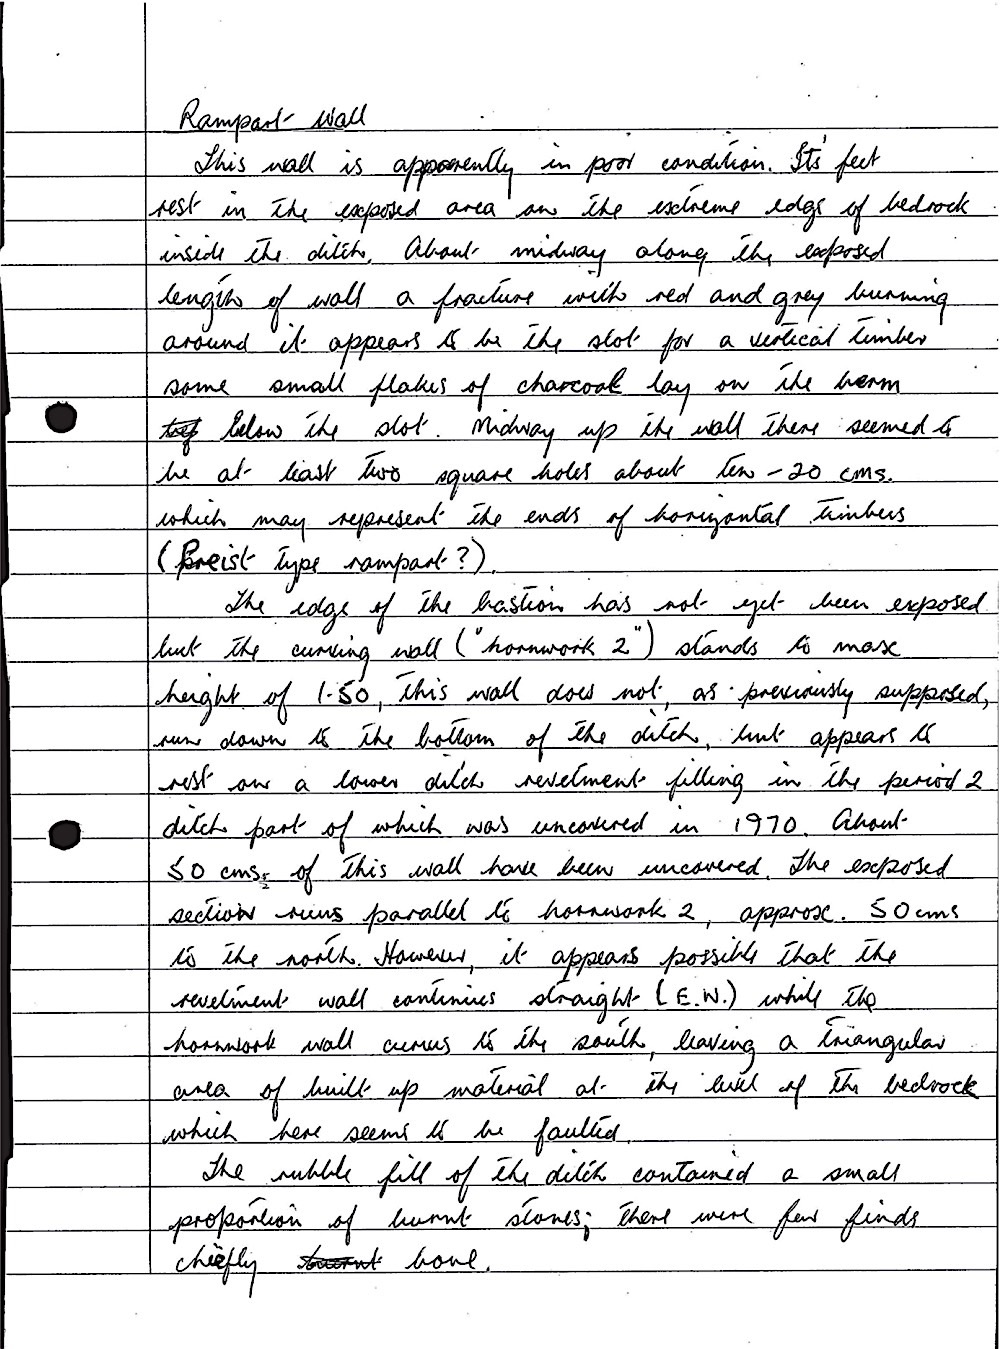 Rampart Wall
This wall is apparently in poor condition. Its' feet
rest in the exposed area on the extreme edge of bedrock
inside the ditch. About midway along the exposed
length of wall a fracture with red and grey burning
around it appears to be the slot for a vertical timber
some small flakes of charcoal lay on the berm
below the slot. Midway up the wall there seemed to
be at least two square holes about ten - 20 cms.
which may represent the ends of horizontal timbers
(Preist type rampart?).
The edge of the bastion has not yet been exposed
but the curving wall ("hornwork 2") stands to max
height of 1.50, this wall does not, as previously supposed,
run down to the bottom of the ditch, but appears to
rest on a lower ditch revetment filling in the period 2
ditch part of which was uncovered in 1970. About
50 cms. of this wall have been uncovered. The exposed
section runs parallel to hornwork 2, approx. 50 cms
to the north. However, it appears possible that the
revetment wall continues straight (E.W.) while the
hornwork wall curves to the south, leaving a triangular
area of built up material at the level of the bedrock
which here seems to be faulted.
The rubble fill of the ditch contained a small
proportion of burnt stones; there were few finds
chiefly burnt bone.